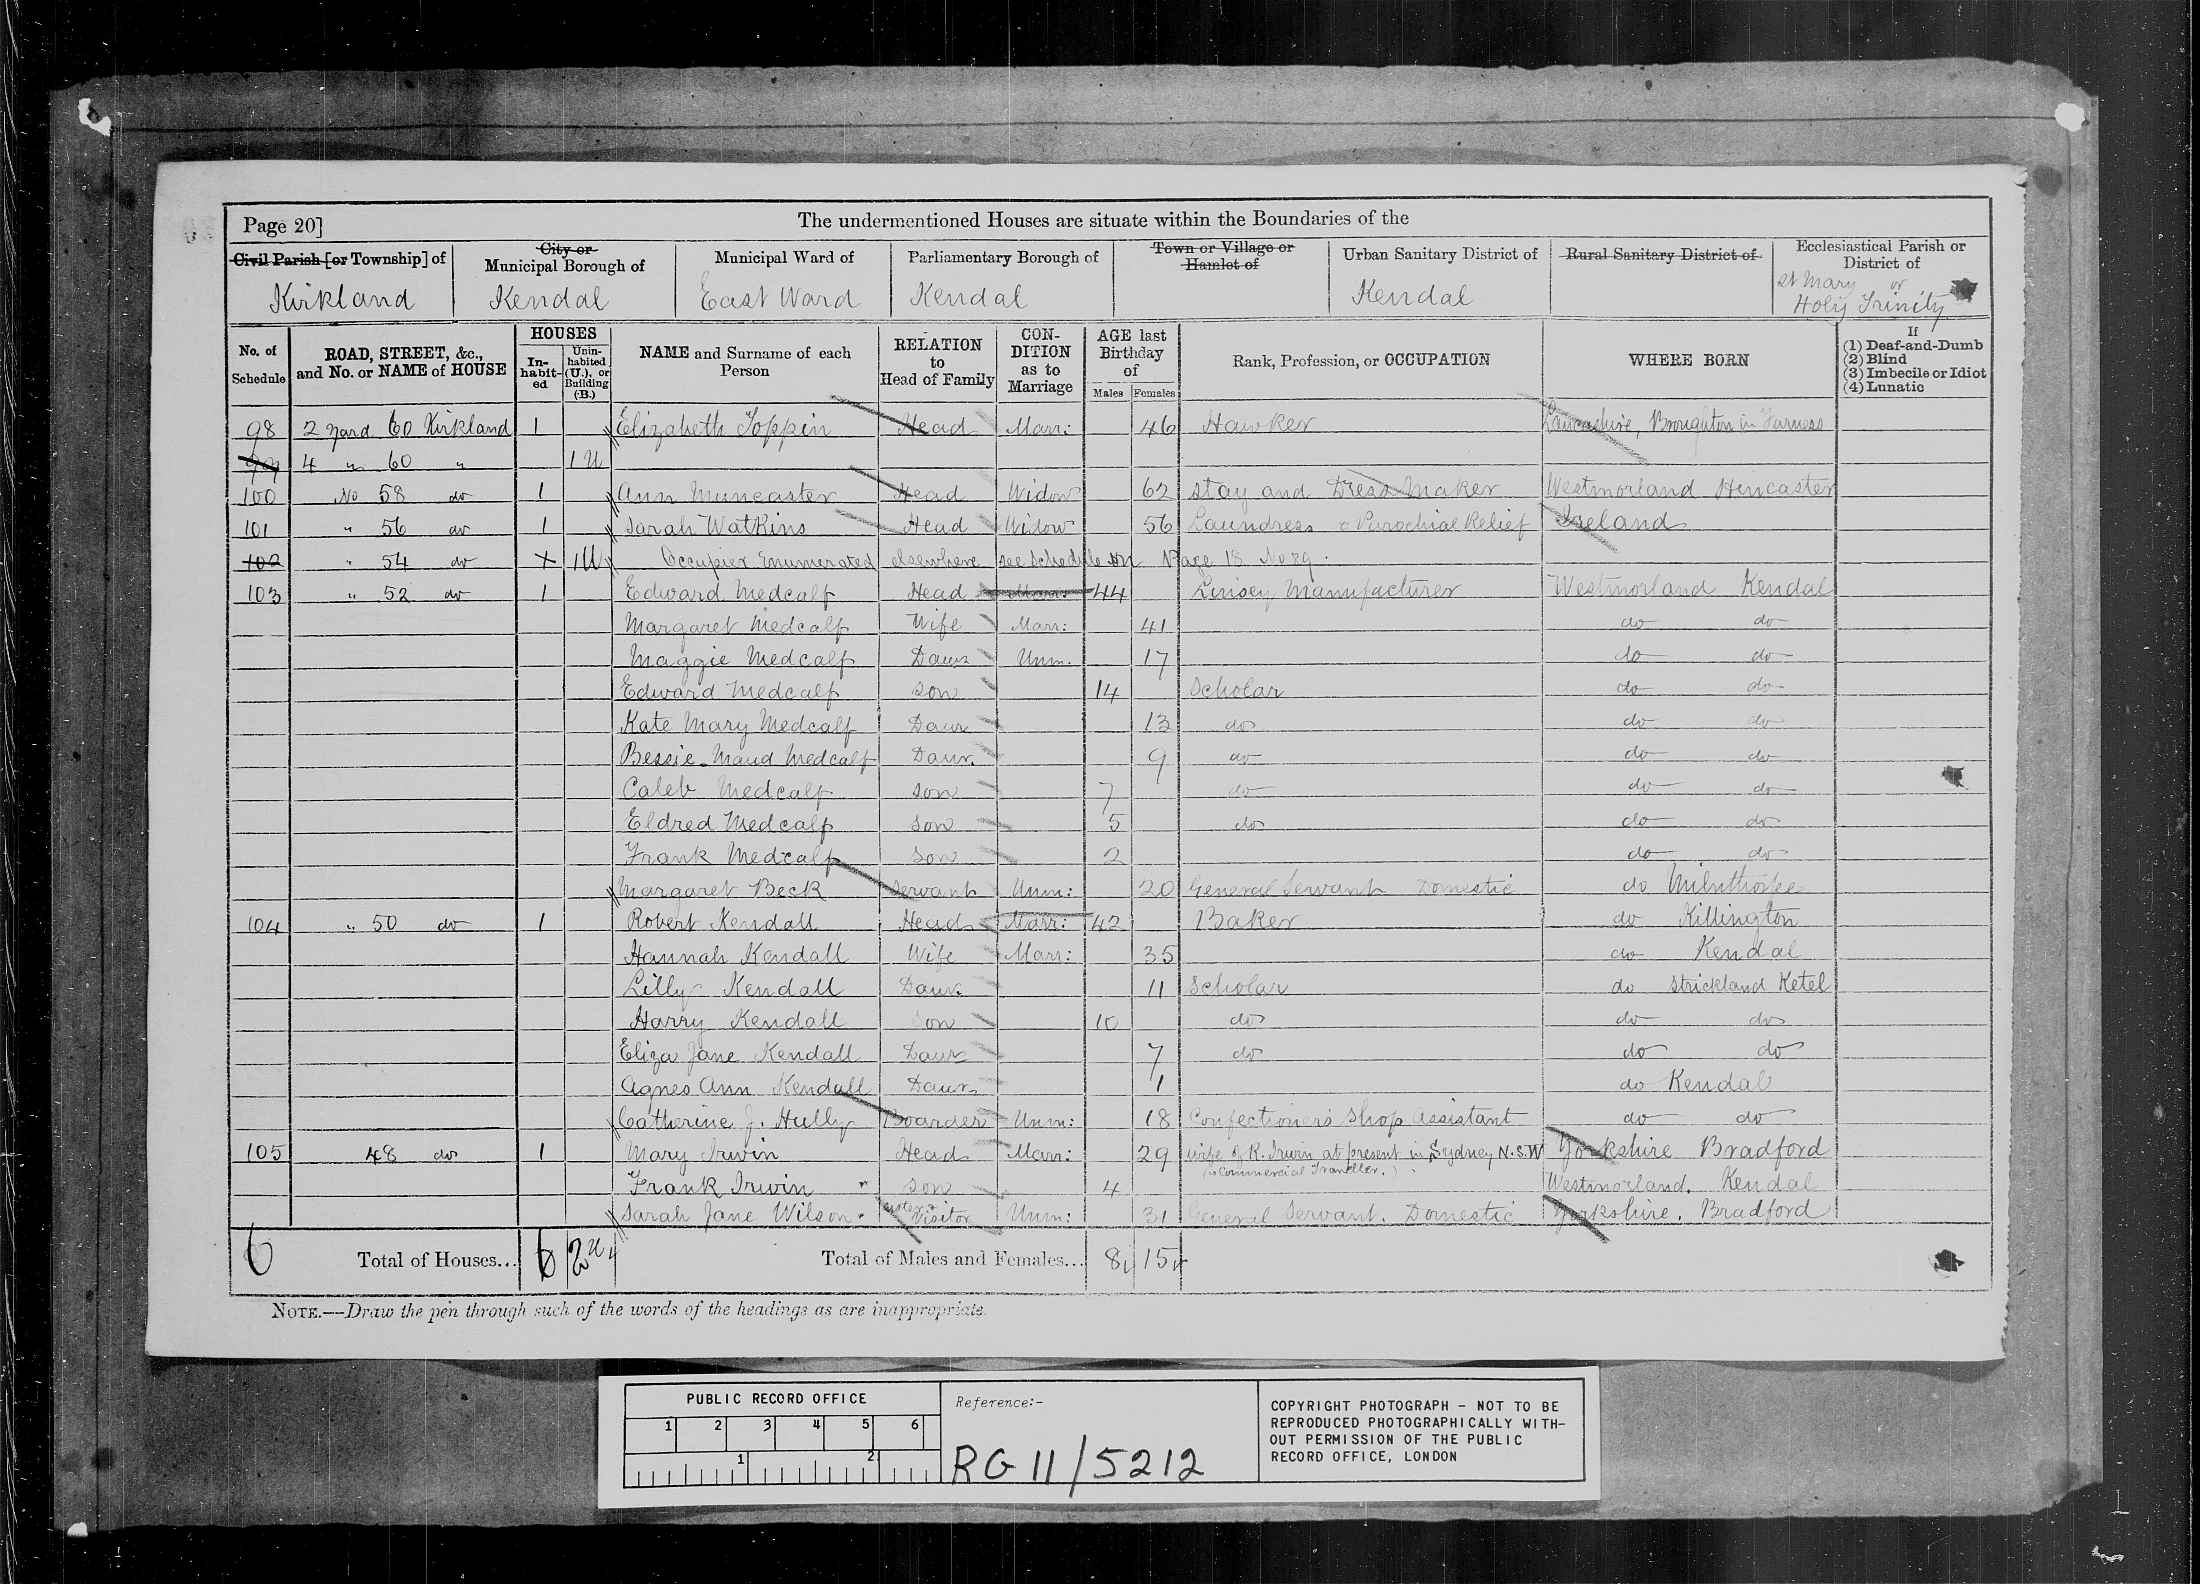 Page 20]
The undermentioned Houses are situate within the Boundaries of the
Civil Parish [or Township] of
City or Municipal Borough of
Municipal Ward of
Parliamentary Borough of
Town or Village or Hamlet of
Urban Sanitary District of
Rural Sanitary District of
Ecclesiastical Parish or District of
Kirkland Kendal East Ward Kendal Kendal St Mary or Holy Trinity
No. of Schedule
ROAD, STREET, &c., and No. or NAME of HOUSE
HOUSES
In-habit-ed
Unin-habited (U.), or Building (B.)
NAME and Surname of each Person
RELATION to Head of Family
CON-DITION as to Marriage
AGE last Birthday of
Males Females
Rank, Profession, or OCCUPATION
WHERE BORN
If
(1) Deaf-and-Dumb
(2) Blind
(3) Imbecile or Idiot
(4) Lunatic
98 2 Yard 60 Kirkland 1 Elizabeth Toppin Head Marr: 46 Hawker Lancashire, Broughton in Furness
99 4 " 60 " 1 U
100 No 58 do 1 Ann Muncaster Head Widow 62 Stay and Dress Maker Westmorland Hincaster
101 " 56 do 1 Sarah Watkins Head Widow 56 Laundress & Parochial Relief Ireland
102 " 54 do 1 U Occupier Enumerated elsewhere see Schedule on Page 18 No 89.
103 " 52 do 1 Edward Medcalf Head Marr: 44 Linsey Manufacturer Westmorland Kendal
Margaret Medcalf Wife Marr: 41 do do
Maggie Medcalf Daur Unm. 17 do do
Edward Medcalf Son 14 Scholar do do
Kate Mary Medcalf Daur 13 do do do
Bessie Maud Medcalf Daur. 9 do do do
Caleb Medcalf Son 7 do do do
Eldred Medcalf Son 5 do do do
Frank Medcalf Son 2 do do
Margaret Beck Servant Unm: 20 General Servant Domestic do Milnthorpe
104 " 50 do 1 Robert Kendall Head Marr: 42 Baker do Killington
Hannah Kendall Wife Marr: 35 do Kendal
Lilly Kendall Daur. 11 Scholar do Strickland Ketel
Harry Kendall Son 10 do do do
Eliza Jane Kendall Daur 7 do do do
Agnes Ann Kendall Daur. 1 do Kendal
Catherine J. Hully Boarder Unm: 18 Confectioner's Shop Assistant do do
105 48 do 1 Mary Irwin Head Marr: 29 Wife of R. Irwin at present in Sydney N.S.W Yorkshire Bradford
(Commercial Traveller.)
Frank Irwin " Son 4 Westmorland. Kendal
Sarah Jane Wilson. Sister Visitor Unm: 31 General Servant. Domestic Yorkshire. Bradford
6 Total of Houses... 6 2 U Total of Males and Females... 8 15
NOTE.—Draw the pen through such of the words of the headings as are inappropriate.
PUBLIC RECORD OFFICE
1 2 3 4 5 6
1 2
Reference:-
RG 11/5212
COPYRIGHT PHOTOGRAPH - NOT TO BE
REPRODUCED PHOTOGRAPHICALLY WITH-
OUT PERMISSION OF THE PUBLIC
RECORD OFFICE, LONDON